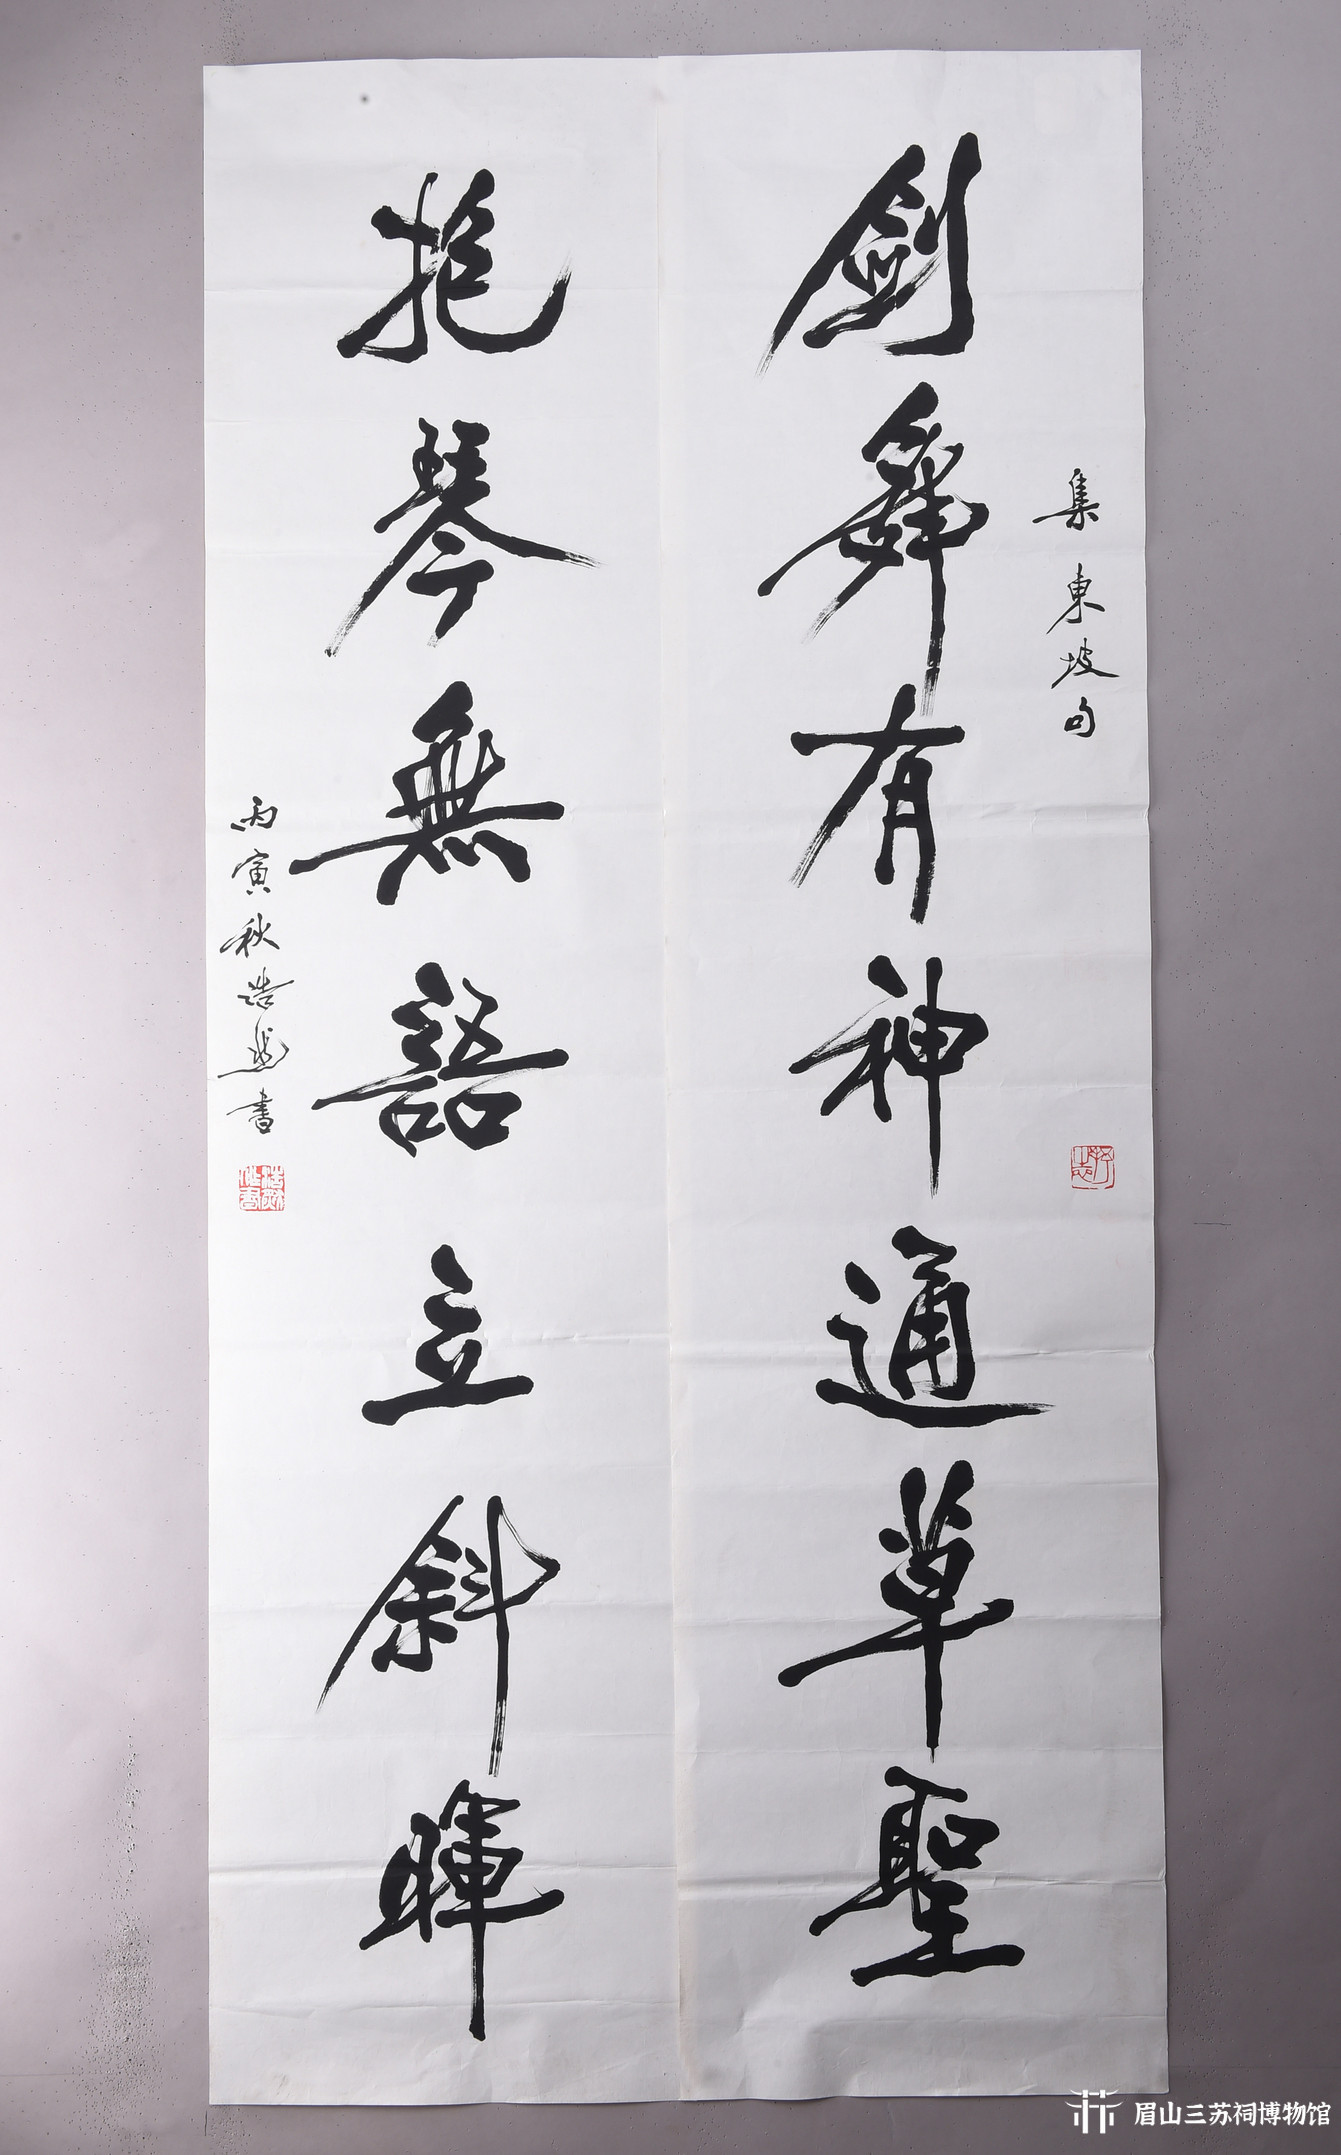 集東坡句
劍舞有神通草聖
抱琴無語立斜暉
丙寅秋浩然書
眉山三苏祠博物馆